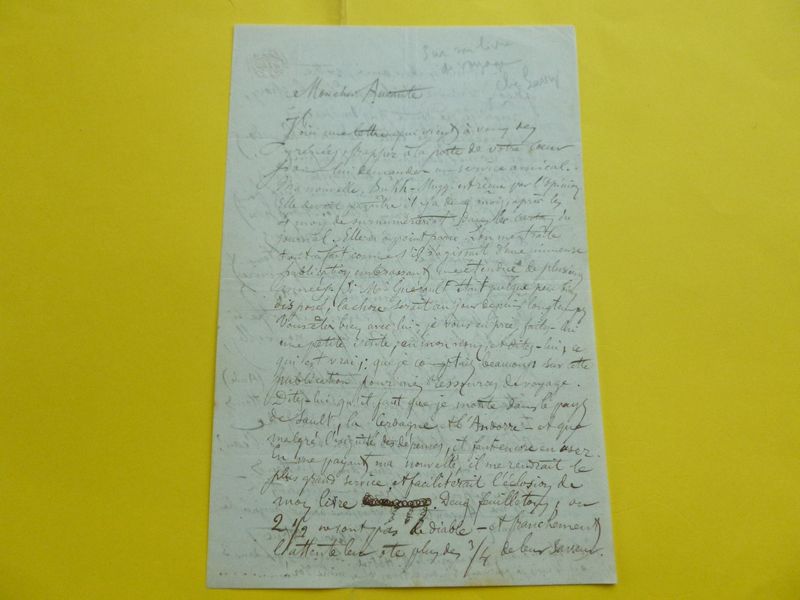 Sur son livre
de voyage
Mon cher
Voici une lettre qui vient à vous des
Pyrénées frapper à la porte de votre cœur
pour lui demander un service amical.
Ma nouvelle, est reçue par l'opinion
Elle devait paraître il y a deux mois, après les
mois de surnumérariat dans les cartons du
journal. Elle n'a point paru. L'on me traite
tout à fait comme s'il s'agissait d'une immense
publication embrassant une étendue de plusieurs
années. Si Mr Guéroult était quelque peu bien
disposé, la chose serait au jour depuis longtemps
Vous êtes bien avec lui, je vous en prie, faites-lui
une petite visite, en mon nom, et dites-lui, ce
qui est vrai, que je comptais beaucoup sur cette
publication pour mes ressources de voyage.
Dites-lui qu'il faut que je monte dans le pays
de Sault, la Cerdagne et l'Andorre - et que
malgré l'exiguité des dépenses, il faut encore en user.
En me payant ma nouvelle, il me rendrait le
plus grand service, et faciliterait l'éclosion de
mon livre. Deux feuilletons, ou
2 1/2 ne sont pas le diable - et franchement
l'attente leur ôte plus des 3/4 de leur saveur.